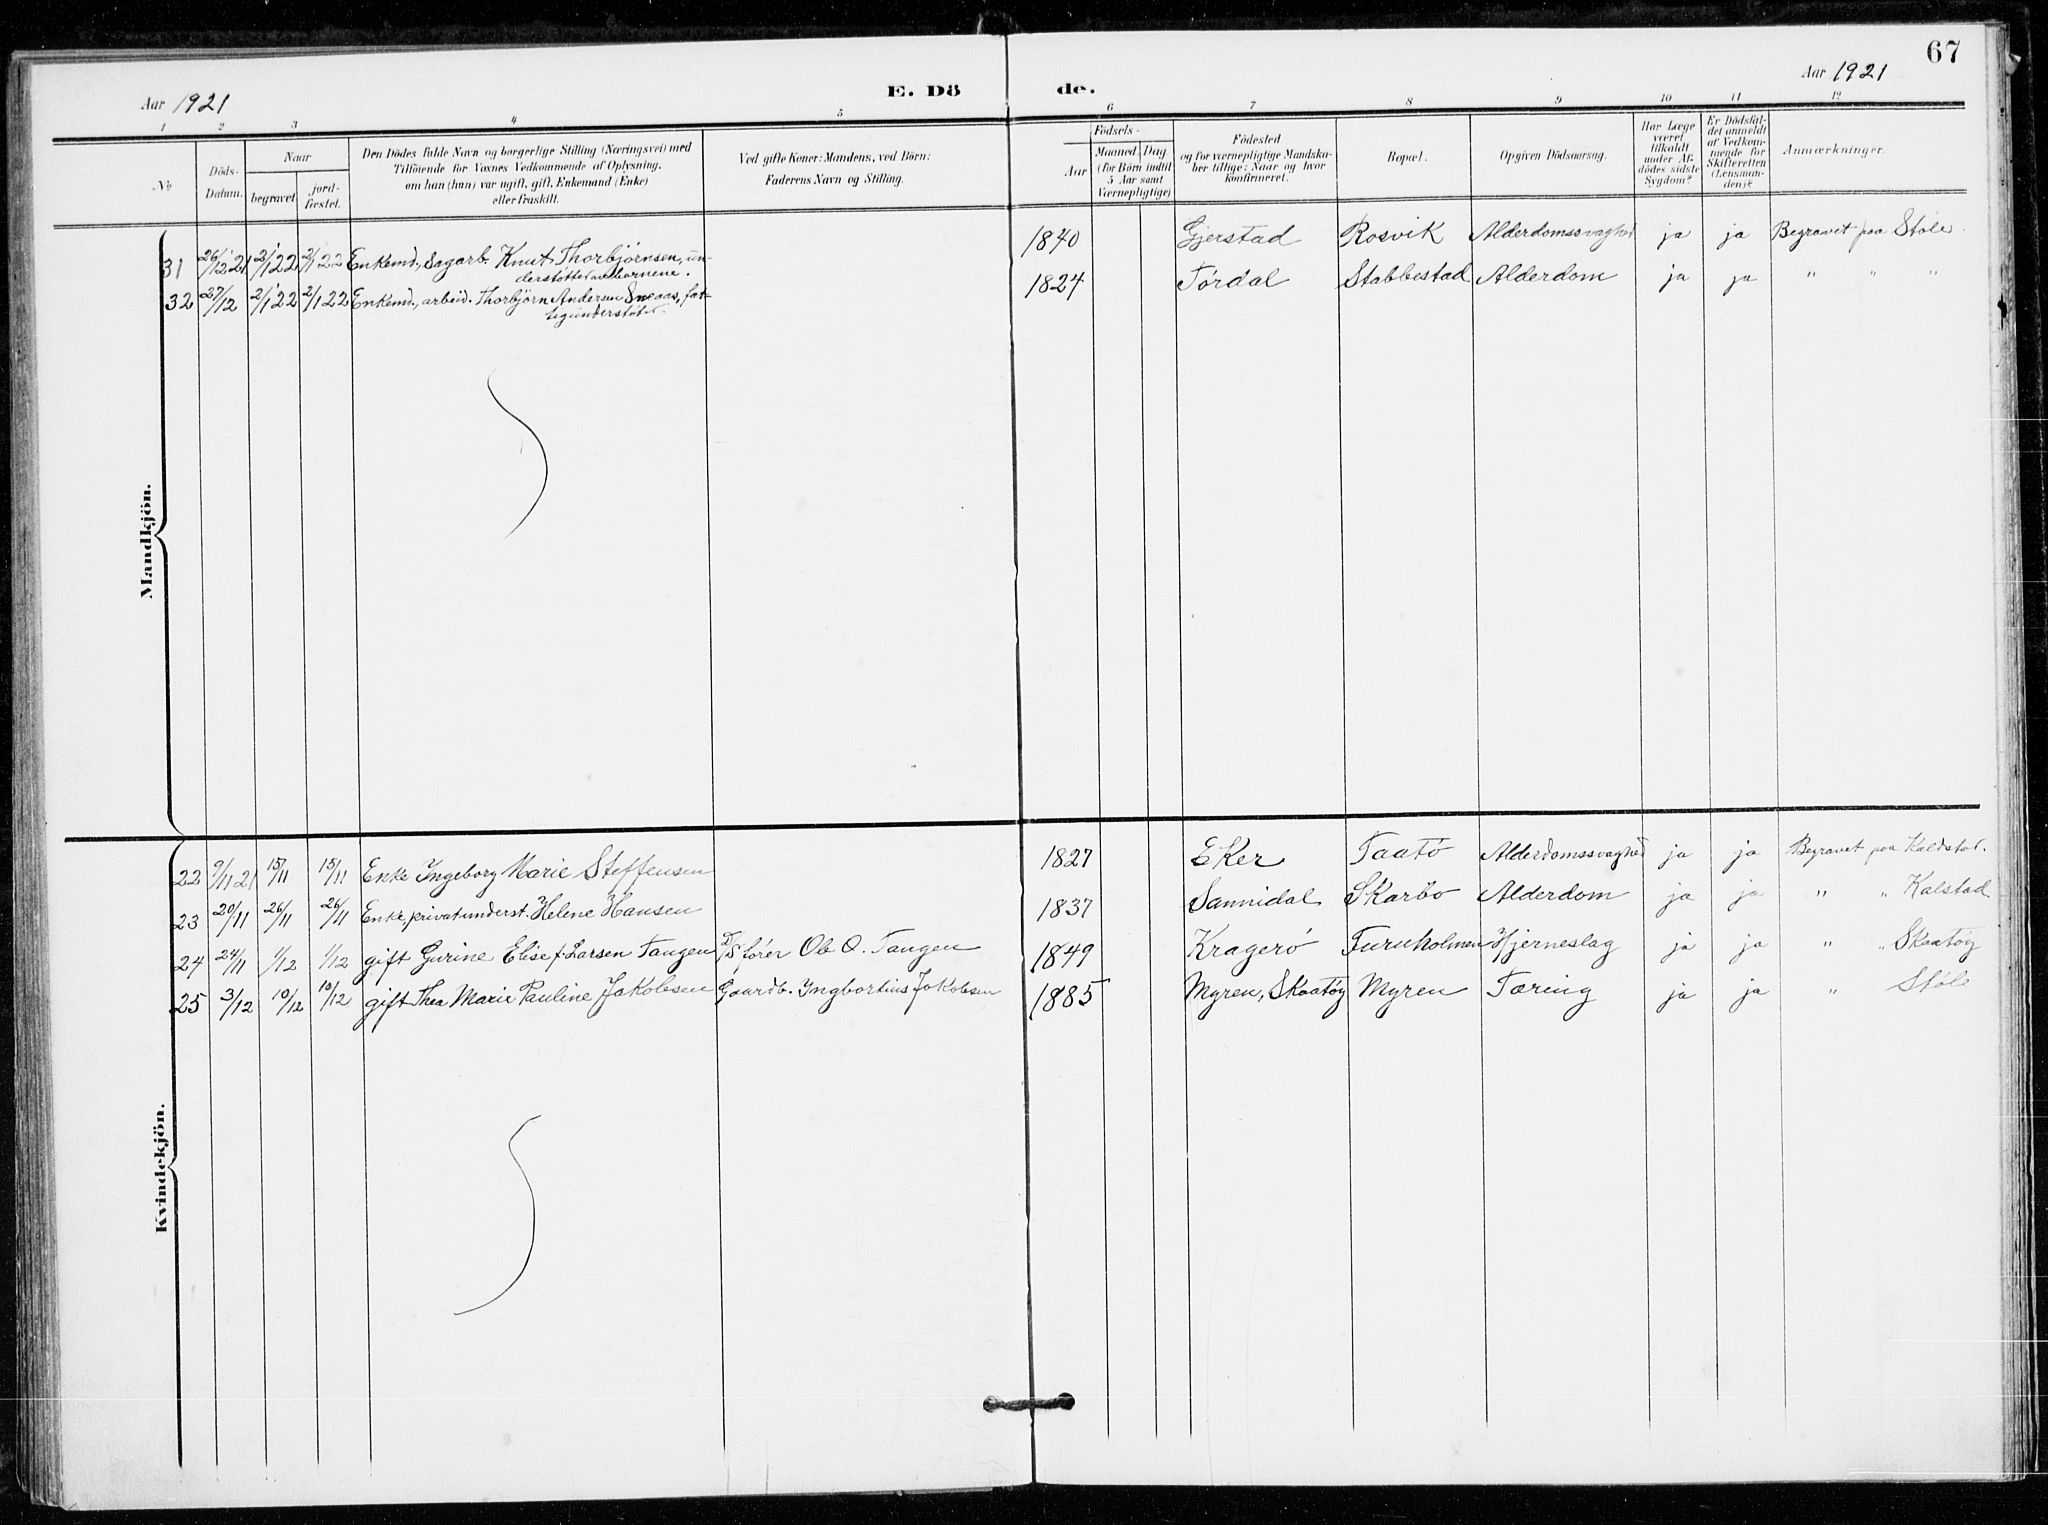 67
Aar 1921
E. Dö
de.
Aar 1921
1 2 3 4 5 6 7 8 9 10 11 12
No
Döds-
Datum.
Naar
begravet
jord-
fæstet.
Den Dödes fulde Navn og borgerlige Stilling (Næringsvei) med
Tilföiende for Voxnes Vedkommende af Oplysning,
om han (hun) var ugift, gift, Enkemand (Enke)
eller fraskilt.
Ved gifte Koner: Mandens, ved Börn:
Faderens Navn og Stilling.
Födsels-
Aar
Maaned Dag
(for Börn indtil
5 Aar samt
Værnepligtige)
Födested
og for værnepligtige Mandska-
ber tillige: Naar og hvor
konfirmeret.
Bopæl.
Opgiven Dödsaarsag.
Har Læge
været
tilkaldt
under Af-
dödes sidste
Sygdom?
Er Dödsfal-
det anmeldt
af Vedkom-
mende for
Skifteretten
(Lensman-
den)?
Anmærkninger.
Mandkjön.
31 26/12 21 2/1 22 2/1 22 Enkemd., Sagarb. Knut Thorbjørnsen, un- 1840 Gjerstad Rosvik Alderdomssvaghed ja ja Begravet paa Støle.
derstøttet av børnene.
32 27/12 2/1 22 2/1 22 Enkemd., arbeid. Thorbjörn Andersen Sneaas, fat- 1824 Tørdal Stabbestad Alderdom ja ja " " "
tigunderstøttet.
Kvindekjön.
22 9/11 21 15/11 15/11 Enke Ingeborg Marie Steffensen 1827 Eker Taatø Alderdomssvaghed ja ja Begravet paa Kalstad.
23 20/11 26/11 26/11 Enke, privatunderst. Helene Hansen 1837 Sannidal Skarbo Alderdom ja ja " " Kalstad
24 24/11 1/12 1/12 gift Gurine Elise f. Larsen Tangen D/S fører Ole O. Tangen 1849 Kragerø Furuholmen Hjerneslag ja ja " " Skaatøy
25 3/12 10/12 10/12 gift Thea Marie Pauline Jakobsen Gaardb. Ingbortius Jakobsen 1885 Myren, Skaatøy Myren Tæring ja ja " Støle